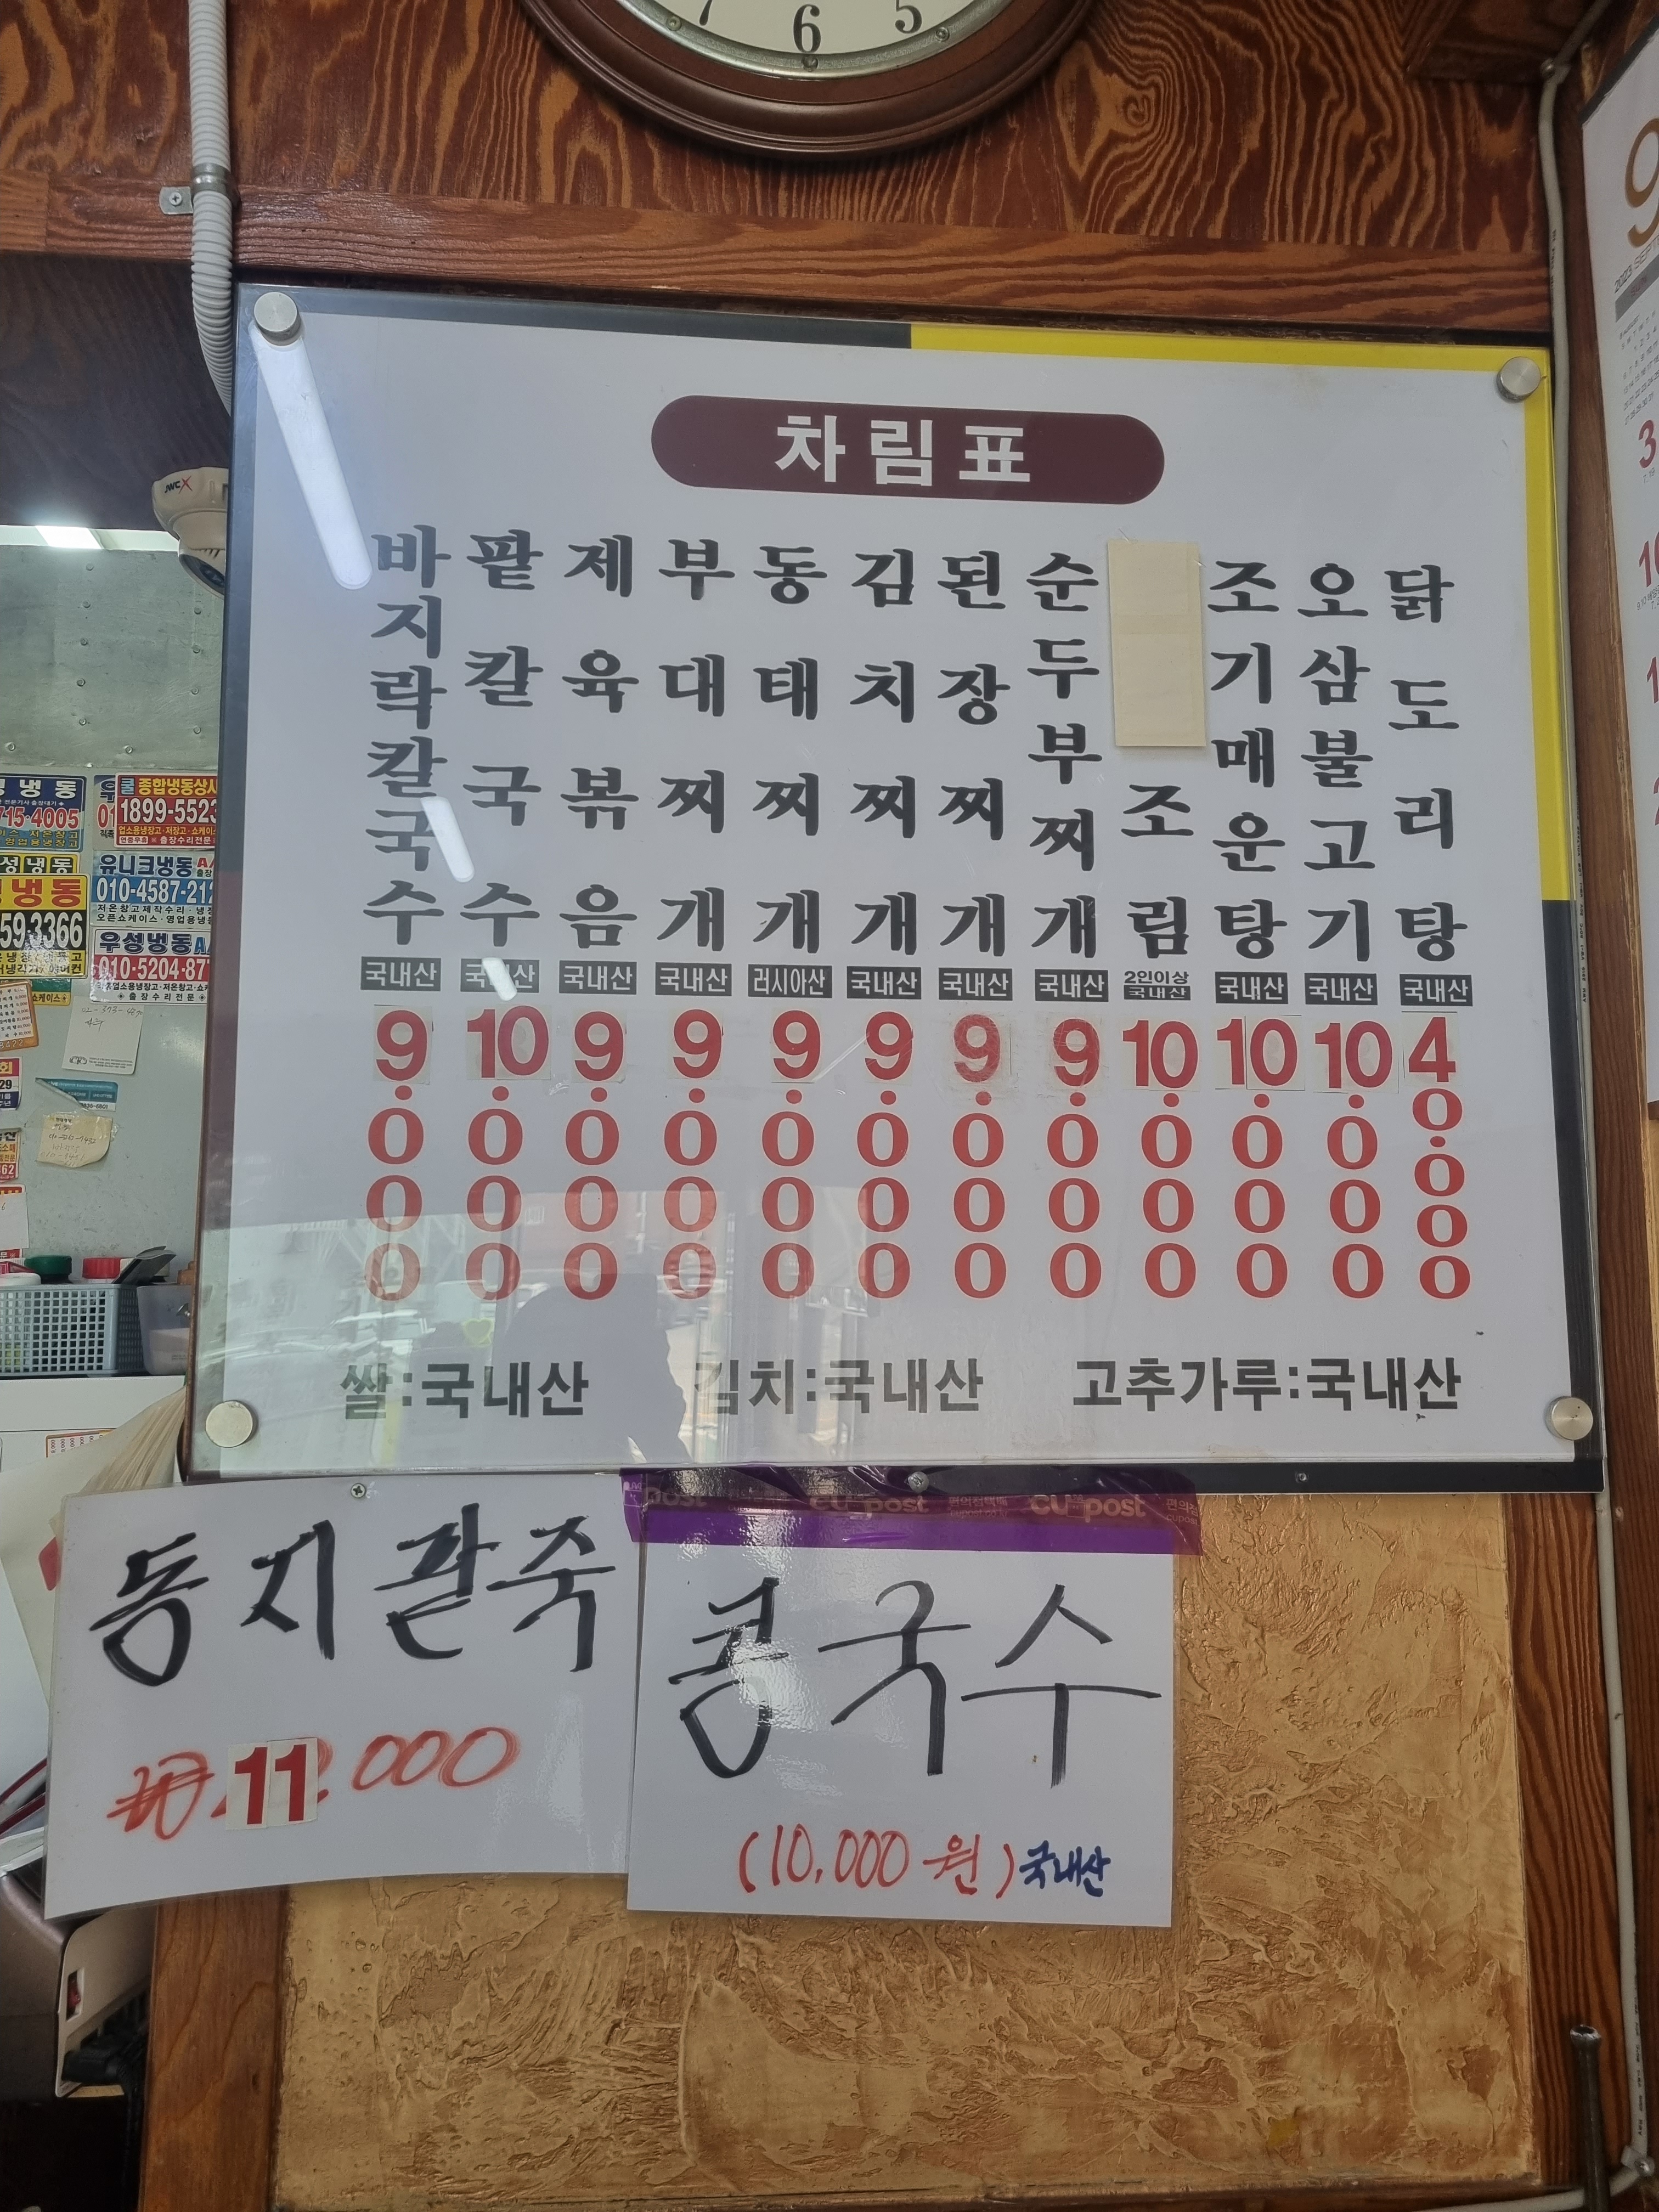 7 6 5
차림표
바지락칼국수 국내산 9.000
팥칼국수 국내산 10.000
제육볶음 국내산 9.000
부대찌개 국내산 9.000
동태찌개 러시아산 9.000
김치찌개 국내산 9.000
된장찌개 국내산 9.000
순두부찌개 국내산 9.000
조림 2인이상 국내산 10.000
조기매운탕 국내산 10.000
오삼불고기 국내산 10.000
닭도리탕 국내산 40.000
쌀:국내산 김치:국내산 고추가루:국내산
동지팥죽
₩11000
콩국수
(10,000원)국내산
post CU post CU post
JWC X
냉동
715-4005
종합냉동상사
1899-5523
성냉동
냉동
59-3366
유니크냉동 A/
010-4587-212
우성냉동A/
010-5204-87
9
2023
3